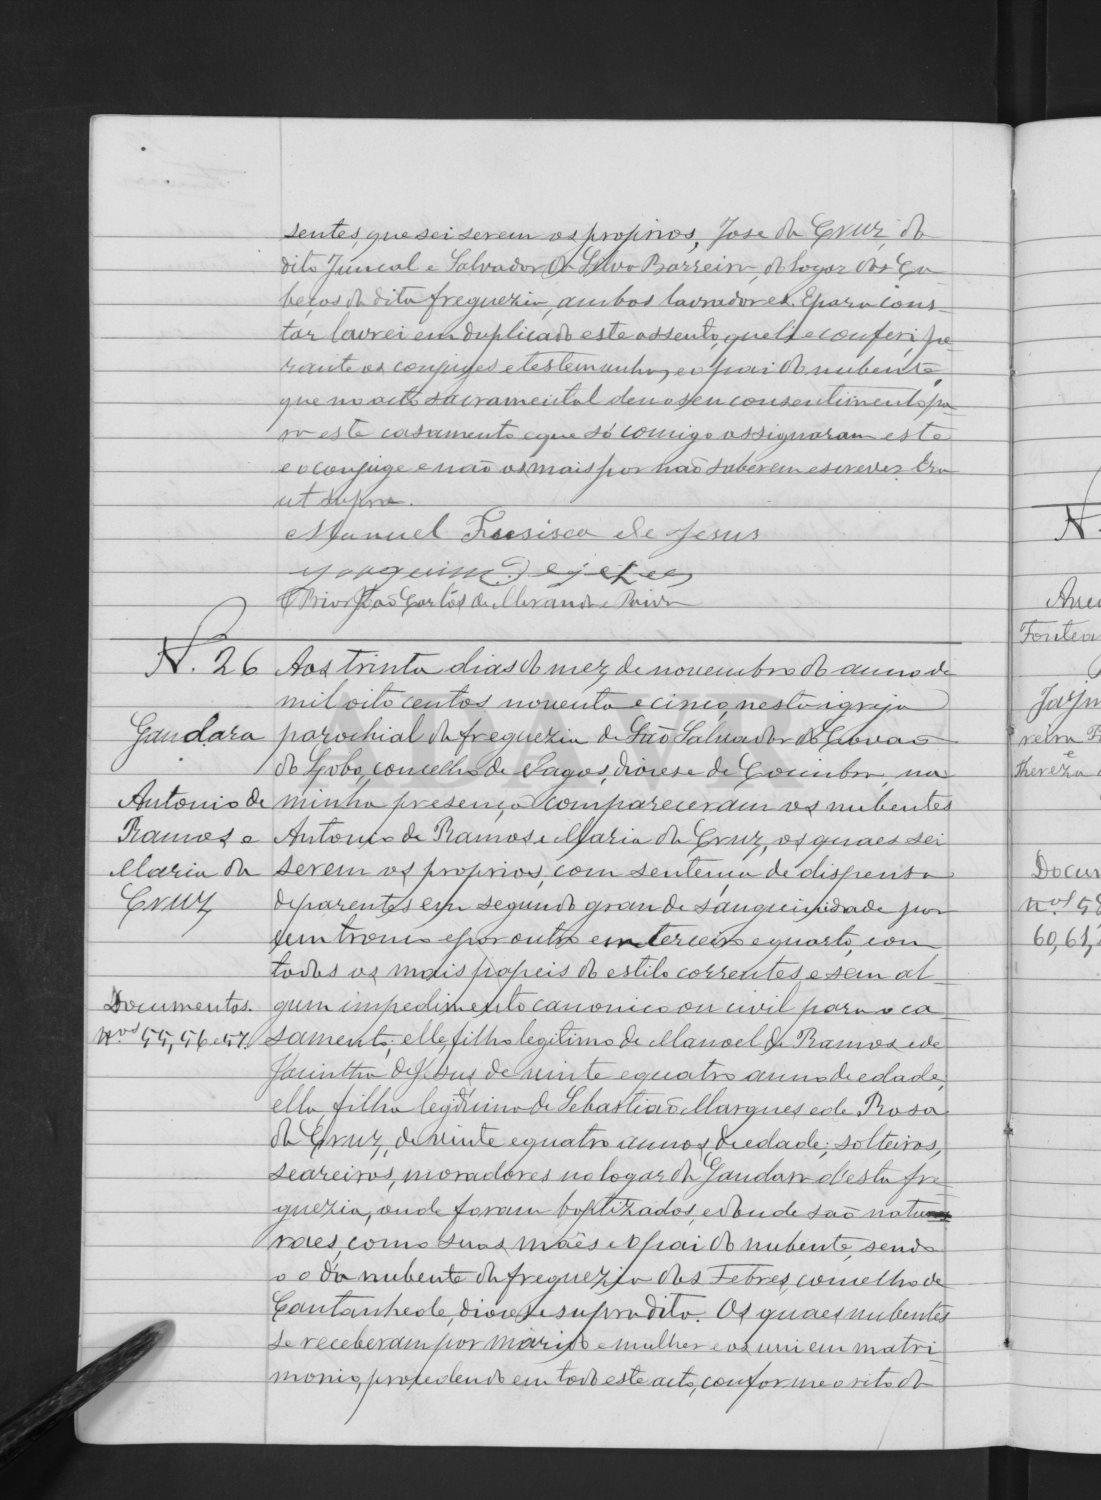 sentes, que sei serem os proprios, Jose da Cruz, do
dito Juncal e Salvador da Silva Barreira, do logar das Ca-
beças da dita freguezia, ambos lavradores. E para cons-
tar lavrei em duplicado este assento, que li e conferi, pe-
rante os conjuges e testemunhas, e o pai do nubente,
que no acto sacramental deu o seu consentimento pa-
ra este casamento e que só comigo assignaram este
e o conjuge e não os mais por não saberem escrever. Era
ut supra.
Manuel Francisco de Jesus
Joaquim de Jesus
O Prior João Carlos de Miranda e Paiva
N. 26 Aos trinta dias do mez de novembro do anno de
mil oito centos noventa e cinco, nesta igreja
Gandara parochial da freguezia de São Salvador de Covão
do Lobo, concelho de Vagos, diocese de Coimbra, na
Antonio de minha presença compareceram os nubentes
Ramos e Antonio de Ramos e Maria da Cruz, os quaes sei
Maria da serem os proprios, com sentença de dispensa
Cruz de parentes em segundo grau de sanguinidade por
um tronco e por outro em terceiro e quarto, com
todos os mais papeis do estilo correntes, e sem al-
Documentos. gum impedimento canonico ou civil para o ca-
N.os 55, 56 e 57. samento; elle, filho legitimo de Manoel de Ramos e de
Jacintha de Jesus de vinte e quatro anno de edade,
ella filha legitima de Sebastião Marques e de Rosa
da Cruz, de vinte e quatro annos, de edade; solteiros,
seareiros, moradores no logar da Gandara d'esta fre-
guezia, onde foram baptizados, e donde são natu
raes, como suas mães e o pai do nubente, sendo
o o da nubente da freguezia das Febres, concelho de
Cantanhede, diocese supradita. Os quaes nubentes
se receberam por marido e mulher e os uni em matri-
monio, procedendo em todo este acto, conforme o rito da
N.
Fontea
Docum
n.os 58
60, 61,